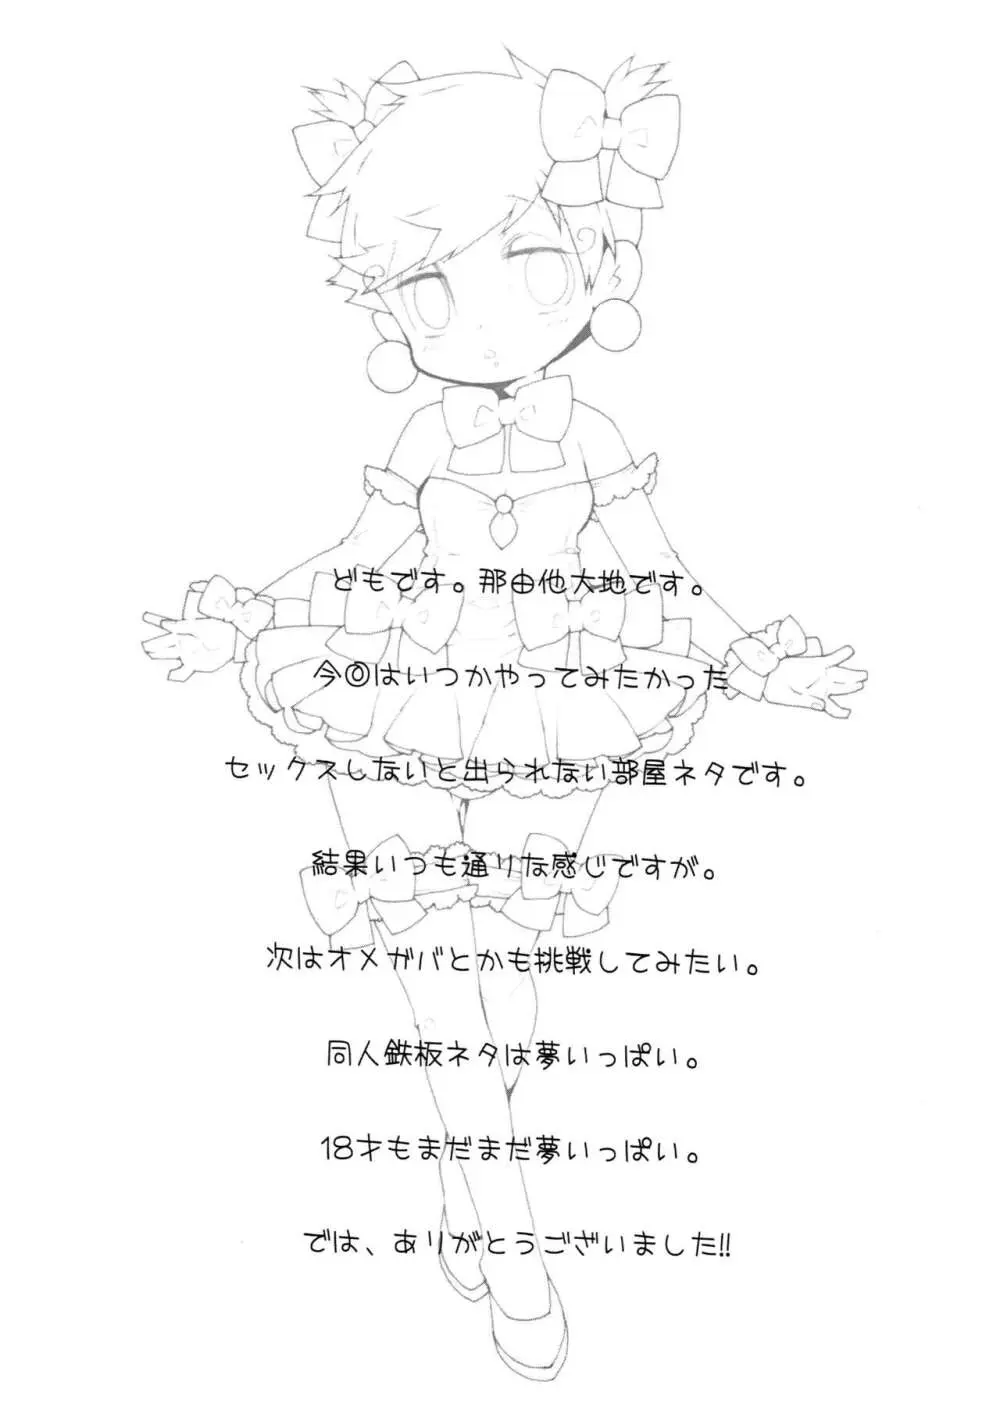 どもです。那由他大地です。
今◎はいつかやってみたかった
セックスしないと出られない部屋ネタです。
結果いつも通りな感じですが。
次はオメガバとかも挑戦してみたい。
同人鉄板ネタは夢いっぱい。
18才もまだまだ夢いっぱい。
では、ありがとうございました!!